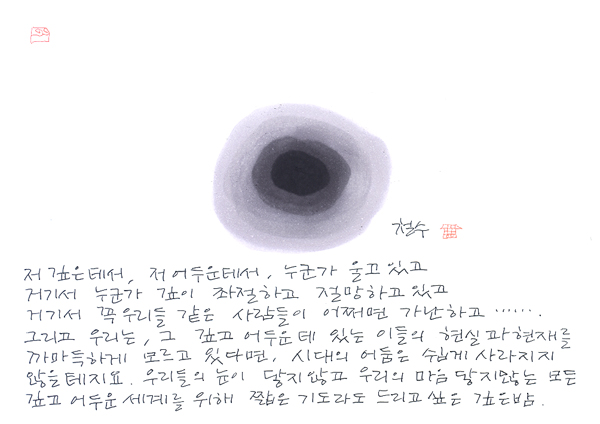 철수
저 깊은데서, 저 어두운데서, 누군가 울고 있고
거기서 누군가 깊이 좌절하고 절망하고 있고
거기서 꼭 우리들 같은 사람들이 어쩌면 가난하고 ······.
그리고 우리는, 그 깊고 어두운데 있는 이들의 현실과 현재를
까마득하게 모르고 있다면, 시대의 어둠은 쉽게 사라지지
않을테지요. 우리들의 눈이 닿지않고 우리의 마음 닿지않는 모든
깊고 어두운 세계를 위해 짧은 기도라도 드리고 싶은 깊은 밤.